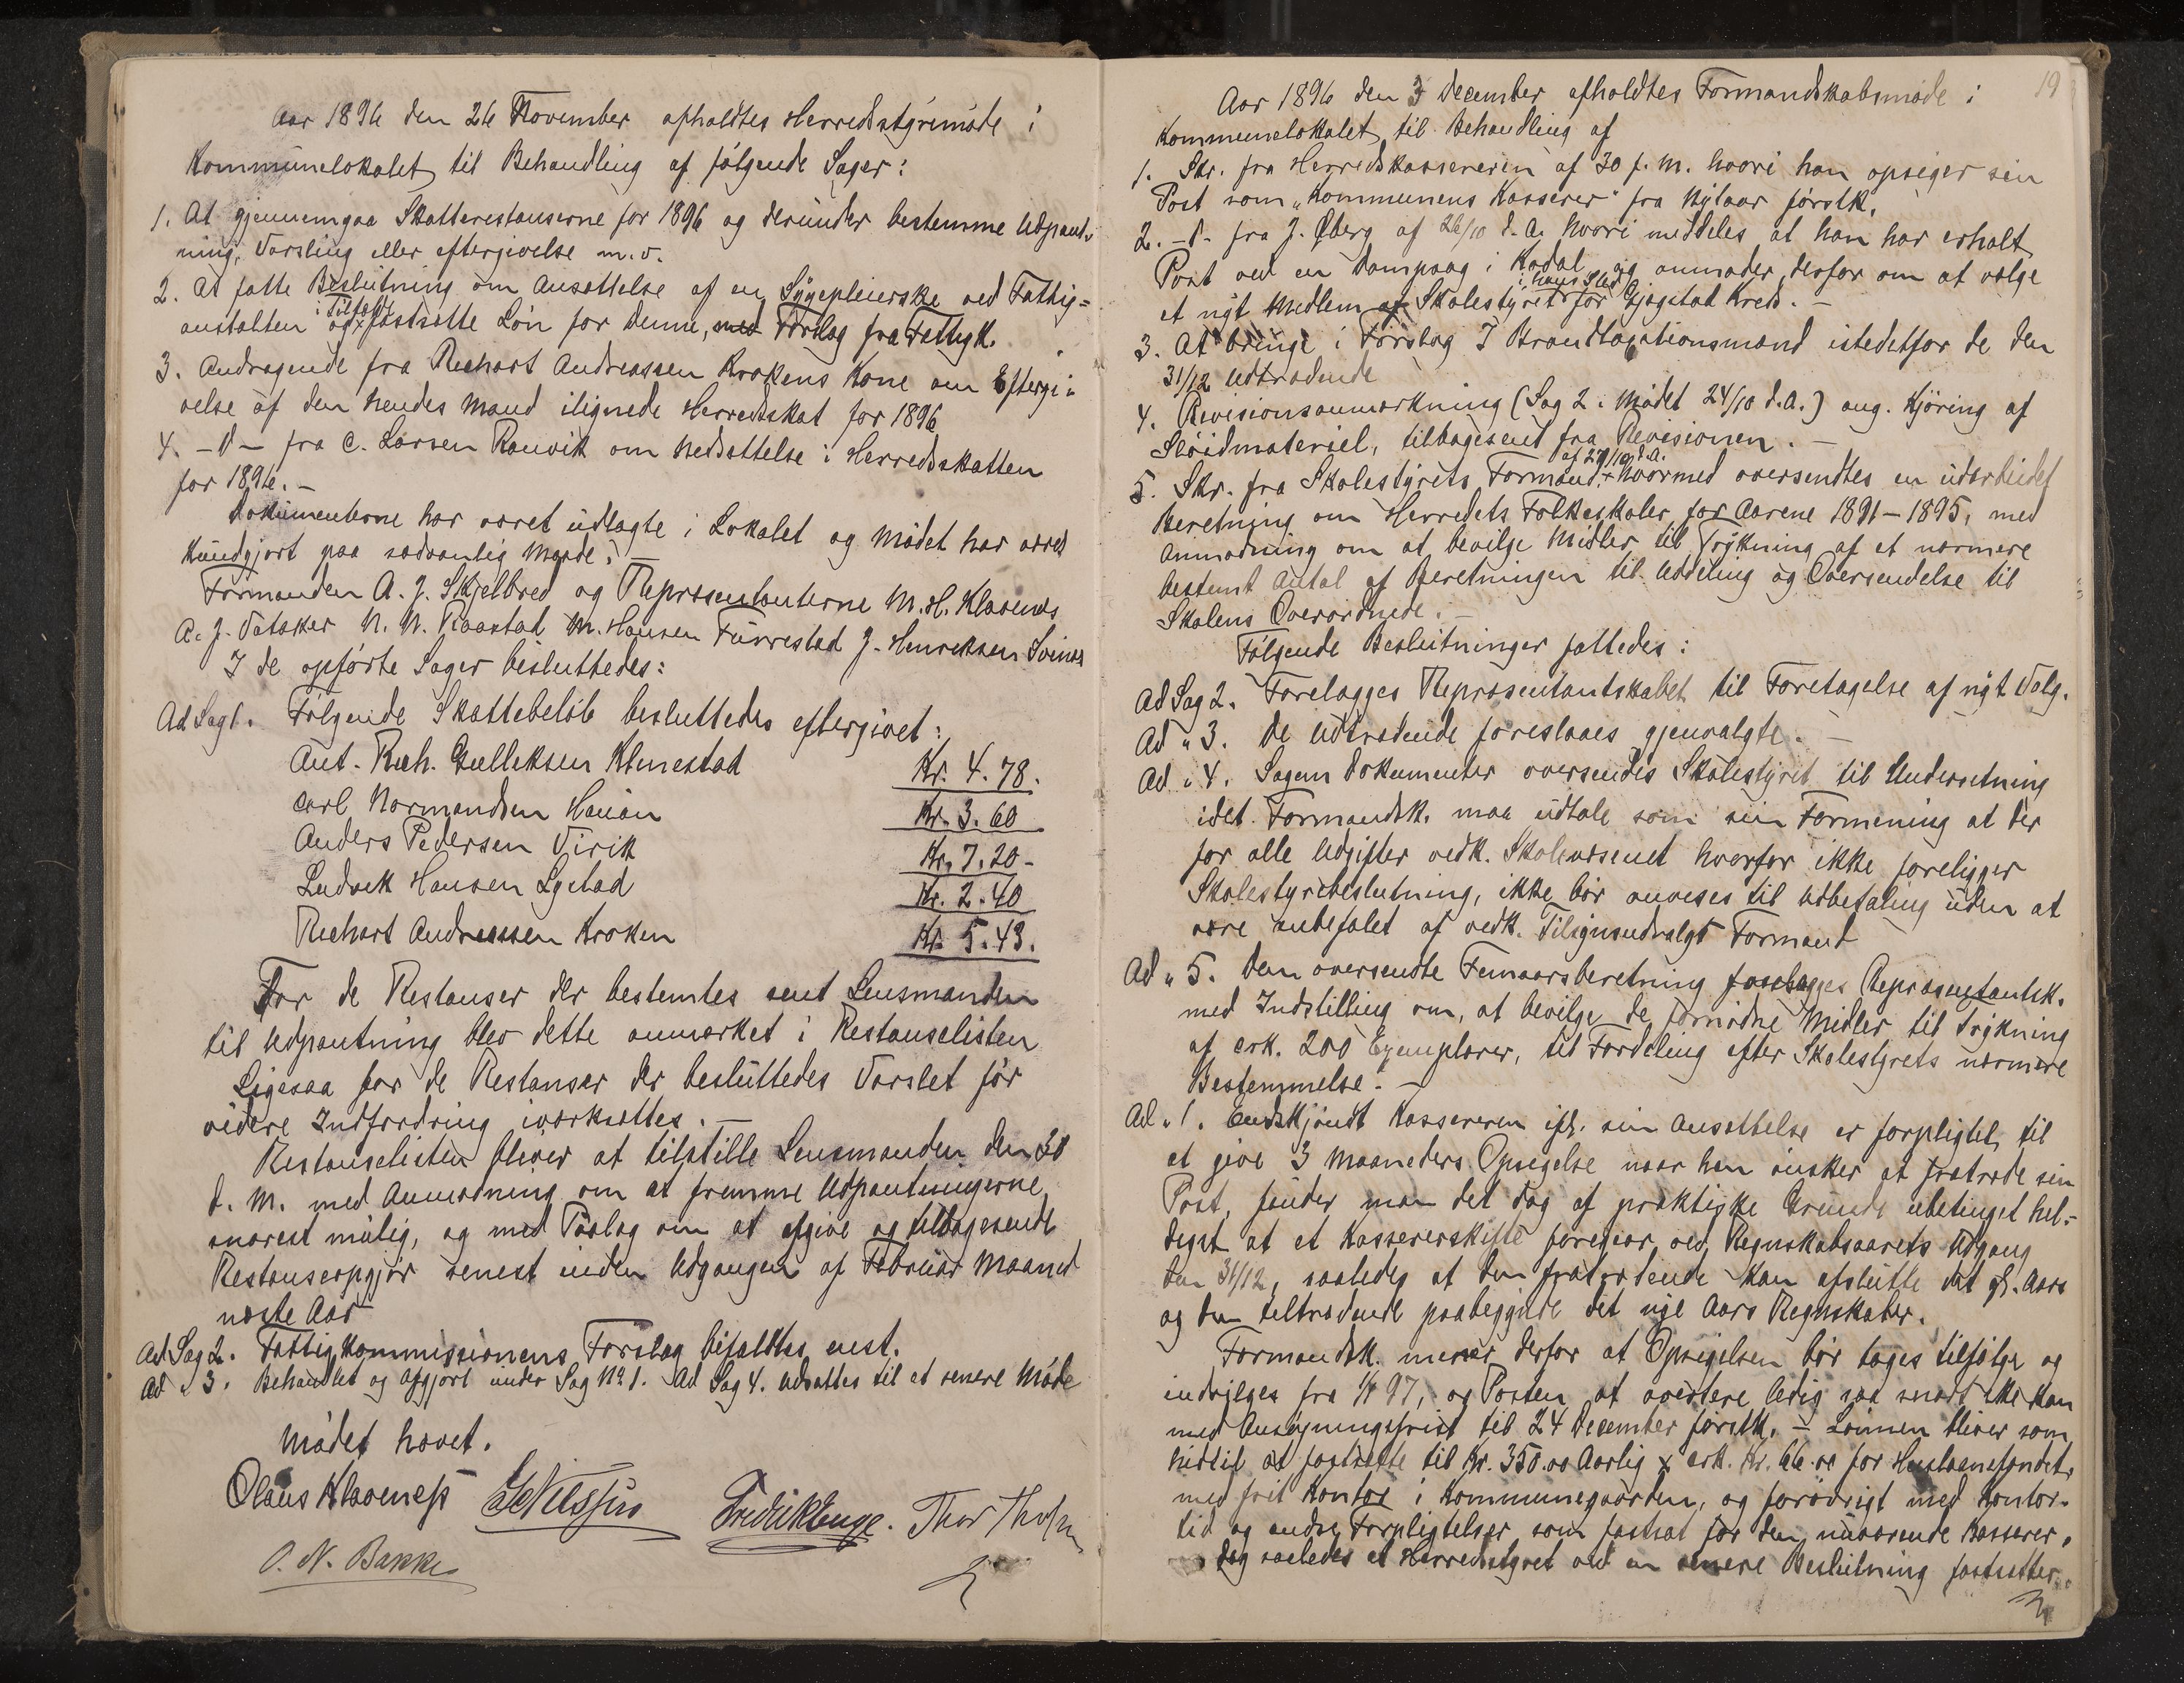 Aar 1896 den 26 November afholdtes Herredsstyremøde i
Kommunelokalet til Behandling af følgende Sager:
1. At gjennemgaa Skatterestanserne for 1896 og derunder bestemme Udpant-
ning, Varsling eller eftergivelse m.v.
2. At fatte Beslutning om Ansættelse af en Sygepleierske ved Fattig=
anstalten og i Tilfælde fastsætte Løn for denne, med Forslag fra Fattigk.
3. Andragende fra Richart Andreassen Krokens Kone om Eftergi-
velse af den hendes Mand ilignede Herredsskat for 1896
4. -d- fra C. Larsen Ranvik om Nedsættelse i Herredsskatten
for 1896. -
Dokumenterne har været udlagte i Lokalet og Mødet har været
kundgjort paa sædvanlig Maade. -
Formanden A. J. Skjelbred og Repræsentanterne M. H. Klavenes
A. J. Vataker N. N. Raastad M. Hansen Furrestad J. Henriksen Svines
I de opførte Sager besluttedes:
Ad Sag 1. Følgende Skattebeløb besluttedes eftergivet:
Ant. Rich. Gulliksen Klinestad Kr. 4.78.
Carl Normandsen Hauan Kr. 3.60
Anders Pedersen Virik Kr. 7.20-
Ludvik Hansen Lystad Kr. 2.40
Richart Andreassen Kroken Kr. 5.43.
For de Restanser der bestemtes sent Lensmanden
til Udpantning blev dette anmærket i Restanselisten
Ligesaa for de Restanser der besluttedes Varslet før
videre Indfordring iværksættes. -
Restanselisten bliver at tilstille Lensmanden den 30
d. M. med Anmodning om at fremme Udpantningerne
snarest mulig, og med Paalæg om at afgive og tilbagesende
Restanseopgjør senest inden Udgangen af Februar Maaned
næste Aar
Ad Sag 2. Fattigkommissionens Forslag bifaldtes enst.
Ad " 3. Behandlet og afgjort under Sag No 1. Ad Sag 4. Udsattes til et senere Møde
Mødet hævet.
Olaus Klaveness Fredrik Enge. Thor
O. N. Bakke
19
Aar 1896 den 3 December afholdtes Formandskabsmøde i
Kommunelokalet til Behandling af
1. Skr. fra Herredskassereren af 30 f. M. hvori han opsiger sin
Post som "Kommunens Kasserer" fra Nytaar førstk.
2. -d- fra J. Øberg af 26/10 d. A. hvori meddeles at han har erholt
Post ved en Dampsag i Kodal og anmoder derfor om at vælge
et nyt Medlem af Skolestyret i hans Sted for Gjøgstad Kreds. -
3. At bringe i Forslag 3 Brandtaxtionsmænd istedetfor de den
31/12 Udtrædende
4. Revisionsanmærkning (Sag 2. Mødet 24/10 d.A.) ang. Kjøring af
Sløidmateriel, tilbagesent fra Revisionen. -
5. Skr. fra Skolestyrets Formand af 27/10 d.A. hvormed oversendtes en udarbeidet
Beretning om Herredets Folkeskoler for Aarene 1891-1895, med
Anmodning om at bevilge Midler til Trykning af et nærmere
bestemt Antal af Beretningen til Uddeling og Oversendelse til
Skolens Overordnede. -
Følgende Beslutninger fattedes:
Ad Sag 2. Forelægges Repræsentantskabet til Foretagelse af nyt Valg.
Ad " 3. De Udtrædende foreslaaes gjenvalgte. -
Ad " 4. Sagens Dokumenter oversendes Skolestyret til Underretning
idet Formandsk. maa udtale som sin Formening at der
for alle Udgifter vedk. Skolevæsenet hvorfor ikke foreligger
Skolestyrebeslutning, ikke bør anvises til Udbetaling uden at
være anbefalet af vedk. Tilsynsudvalgs Formand
Ad " 5. Den oversendte Femaarsberetning forelægges Repræsentantsk.
med Indstilling om, at bevilge de fornødne Midler til Trykning
af cirk. 200 Exemplarer, til Fordeling efter Skolestyrets nærmere
Bestemmelse. -
Ad " 1. Endskjøndt Kassereren ifl. sin Ansættelse er forpligtet til
at give 3 Maaneders Opsigelse naar han ønsker at fratræde sin
Post, finder man det dog af praktiske Grunde ubetinget hel-
digst at et Kassererskifte foregaar ved Regnskabsaarets Udgang
den 31/12, saaledes at den fratrædende kan afslutte det gl. Aars
og den tiltrædende paabegynde det nye Aars Regnskaber.
Formandsk. mener derfor at Opsigelsen bør tages tilfølge og
indvilges fra 1/1 97, og Posten at avertere ledig saa snart ske kan
med Ansøgningsfrist til 24 December førstk. - Lønnen bliver som
hidtil at fastsætte til Kr. 350.00 Aarlig x cirk. Kr. 66.00 for Huslaanefondet,
med frit Kontor i Kommunegaarden, og forøvrigt med Kontor-
tid og andre Forpligtelser som fastsat for den nuværende Kasserer,
dog saaledes at Herredsstyret ved en senere Beslutning fastsætter